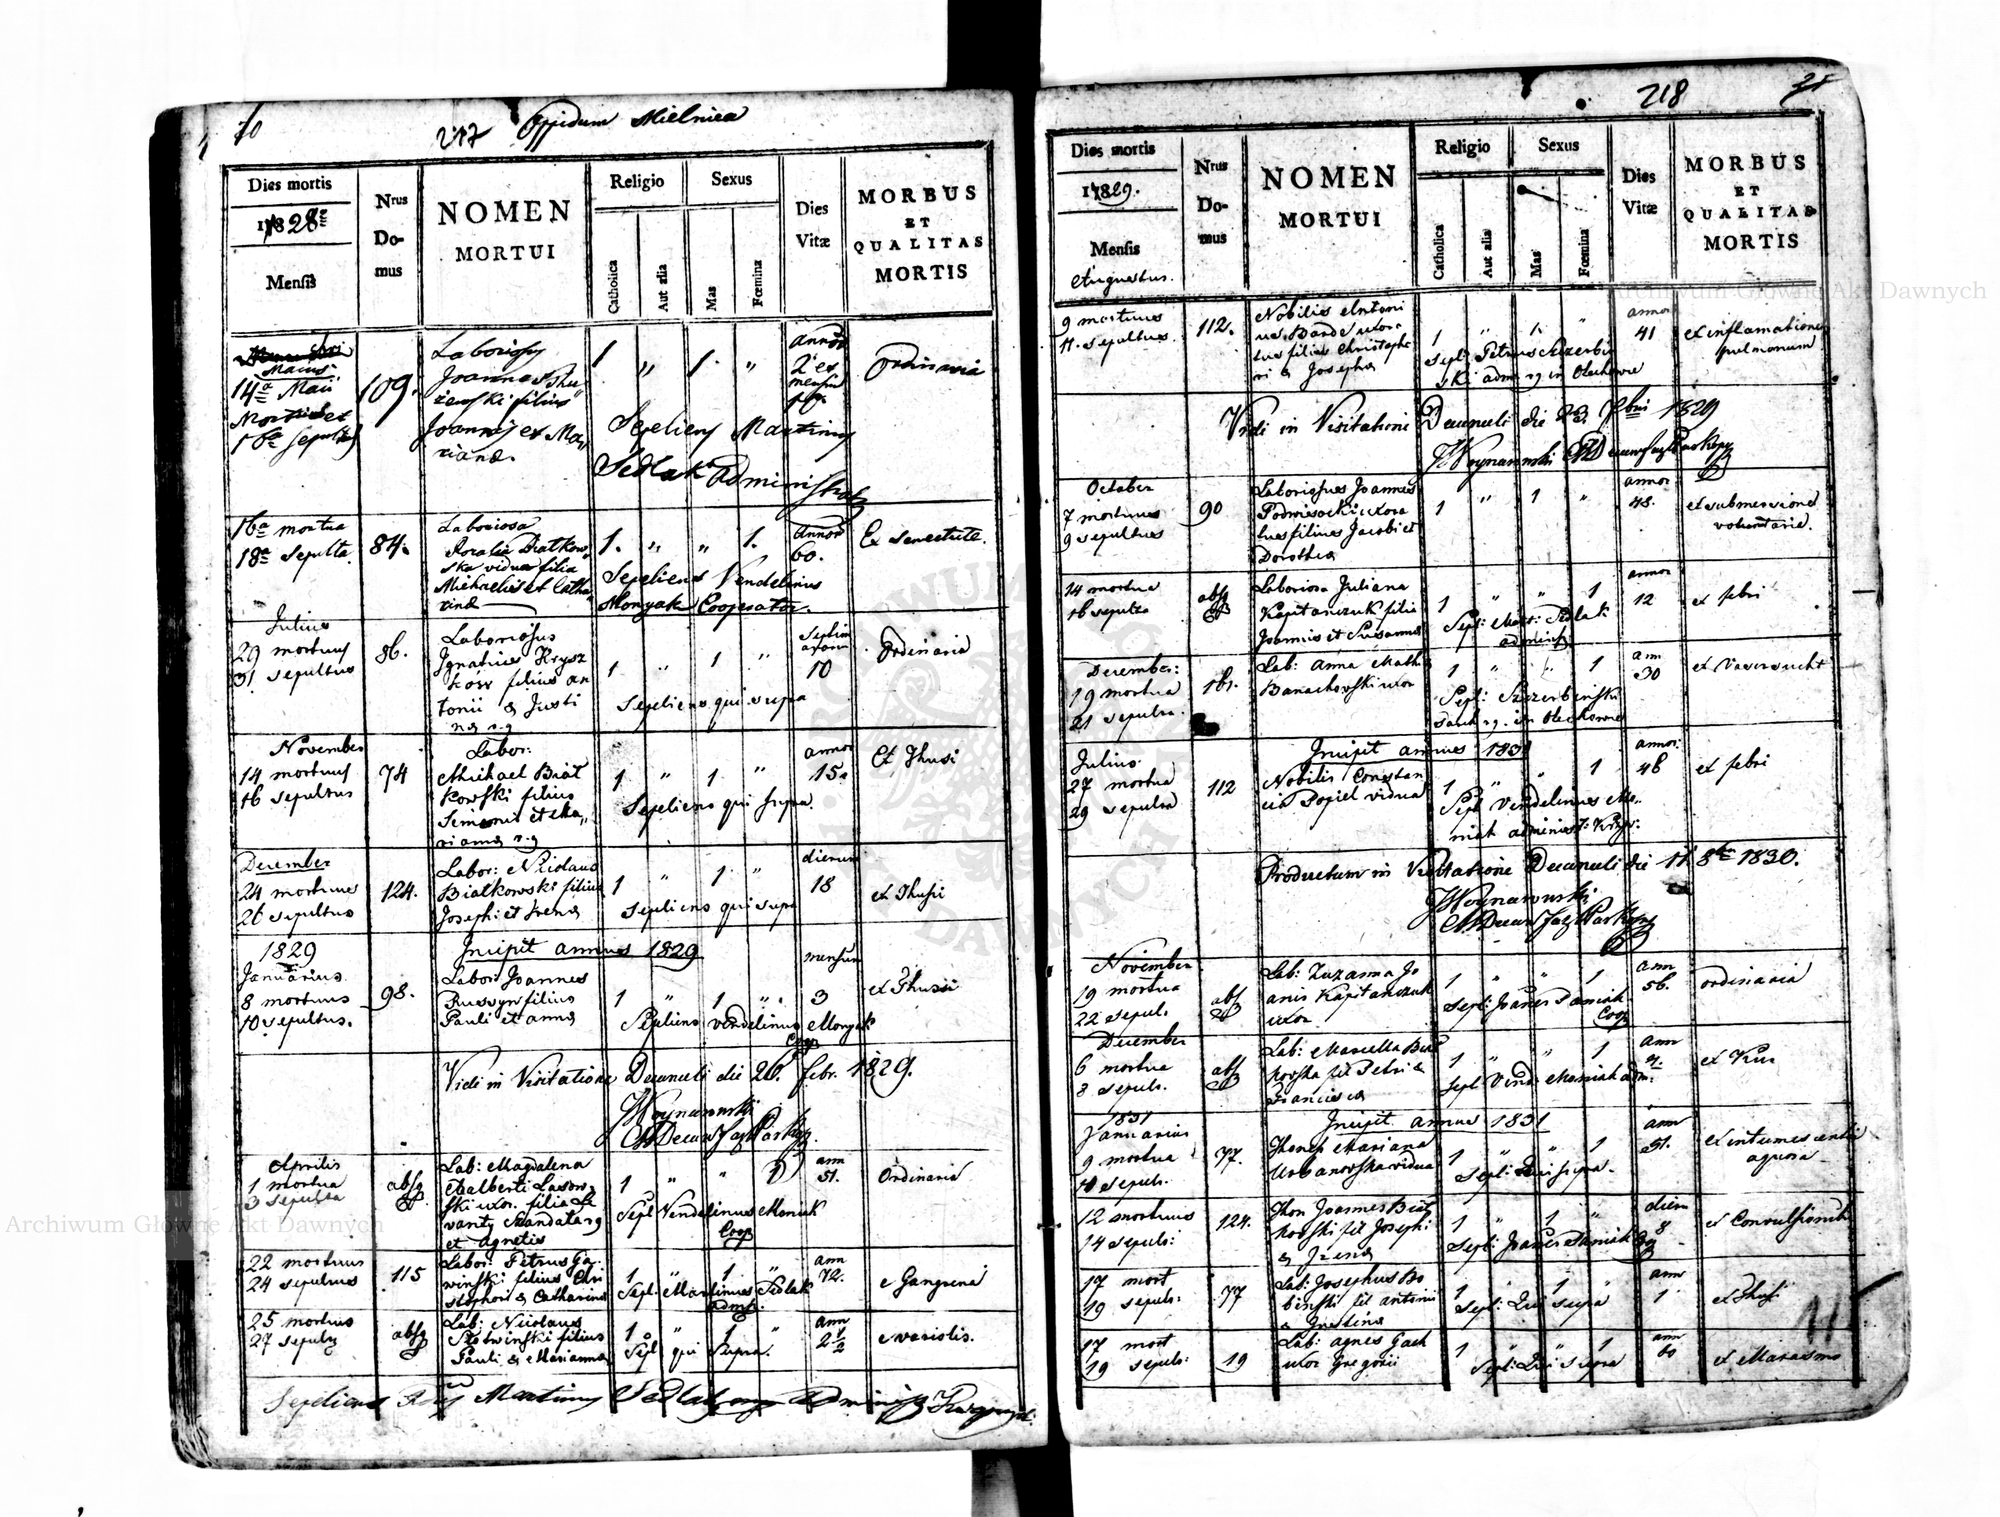 70
217 Oppidum Mielnica
Dies mortis
1828
Mensis
Nrus
Do-
mus
NOMEN
MORTUI
Religio
Catholica
Aut alia
Sexus
Mas
Fœmina
Dies
Vitæ
MORBUS
ET
QUALITAS
MORTIS
Maius
14a Maii
Mortus et
16a sepultus
109.
Laboriosus
Joannes
filius
Joannis et Ma,,
rianæ.
1 " 1. "
annor
2 et
mensium
Ordinaria
Sepeliens Martinus
Sedlak Administrator
16a mortua
18a sepulta
84.
Laboriosa
Rosalia Białkow,,
ska vidua filia
Michaelis et Catha,,
rinæ
1. " " 1.
annor
60.
Ex senectute.
Sepeliens Vendelinus
Monyak Cooperator.
Julius
29 mortuus
31 sepultus
86.
Laboriosus
Ignatius Krysz
ków filius An
tonii & Justi
næ r.g
1 " 1 "
Septim
anarum
10
Ordinaria
Sepeliens qui supra
November
14 mortuus
16 sepultus
74
Labor:
Michael Biał
kowski filius
Simonis et Ma,,
rianæ r.g
1 " 1 "
annor
15
Ex thusi
Sepeliens qui supra.
December
24 mortuus
26 sepultus
124.
Labor: Nicolaus
Białkowski filius
Josephi et Irenæ
1 " 1 "
dierum
18
ex thusi
Sepeliens qui supra
1829
Januarius
8 mortuus
10 sepultus.
98.
Incipit annus 1829
Labor: Joannes
Russyn filius
Pauli et Annæ
1 " 1 "
mensium
3
ex Thussi
Sepeliens Vendelinus Monyak
Coop
Vidi in Visitatione Decanali die 26. febr. 1829.
JWoynarowski
Aprilis
1 mortua
3 sepulta
absq
Lab: Magdalena
Adalberti Lasow,,
ski uxor. filia
et Agnetis
1 " " 1
ann
51.
Ordinaria
Sepl Vendelinus Moniak
Coop
22 mortuus
24 sepultus
115
Labor: Petrus Ga
winski filius Chri
stophori & Catharinæ
1 " 1 "
ann
72.
e Gangrena
Sepl: Martinus Sedlak
adm.
25 mortuus
27 sepultus
absq
Lab: Nicolaus
Słotwinski filius
Pauli & Mariannæ
1 " 1 "
ann
2 1/2
e variolis.
Sepl qui supra.
Sepeliens Martinus Sedlak
218
Dies mortis
1829.
Mensis
Augustus.
Nrus
Do-
mus
NOMEN
MORTUI
Religio
Catholica
Aut alia
Sexus
Mas
Fœmina
Dies
Vitæ
MORBUS
ET
QUALITAS
MORTIS
9 mortuus
11. sepultus.
112.
Nobilis Antoni
us Barde uxora
tus filius Christopho
ri & Josephæ
1 " 1. "
annor
41
ex inflamatione
pulmonum
Sepl: Petrus Szczerbiń
ski adm: r.g in Olechowce
Vidi in Visitatione Decanali die 23 7bris 1829
JWoynarowski
October
7 mortuus
9 sepultus
90
Laboriosus Joannes
Podwisocki uxora
tus filius Jacobi et
Dorotheæ
1 " 1 "
annor
48.
ex submersione
voluntaria.
14 mortua
16 sepulta
absq
Laboriosa Juliana
Kapitanczuk filia
Joannis et Susannæ
1 " " 1
annor
12
ex febri
Sepl: Mart: Sedlak
administ
December:
19 mortua
21 sepulta.
161.
Lab: Anna Math
Banachowski uxor
1 " " 1
ann
30
ex Vasersucht
Sepl: Szczerbiński
r.g. in Olechowce
Incipit annus 1831
Julius
27 mortua
29 sepulta
112
Nobilis Constan
cia Popiel vidua
1 " " 1
annor:
48
ex febri
Sepl Vendelinus Mo,,
niak administ: Krzyw:
Productum in Visitatione Decanali die 11. 8bris 1830.
JWoynarowski
November
19 mortua
22 sepul.
absq
Lab: Zuzanna Jo
anis Kapitanczuk
uxor
1 " " 1
ann
56.
ordinaria
Sepl: Joanes Damiak
Coop
December
6 mortua
8 sepul.
absq
Lab: Marcella Biał
kowska fil Petri &
Franciscæ
1 " " 1
ann
ex Kur
Sepl Vend: Moniak adm:
1831
Januarius
9 mortua
11 sepul.
77.
Incipit annus 1831
Honesta Mariana
Urbanowska vidua
1 " " 1
ann
51.
ex intumescentia
aquosa
Sepl: Qui supra.
12 mortuus
14 sepul:
124.
Hon Joannes Biał
kowski fil Josephi
& Irenæ
1 " 1 "
dierum
8
ex Convulsionib
Sepl: Joanes Damiak
17 mort
19 sepul:
77
Lab: Josephus Bo
binski fil Antonii
& Justinæ
1 " 1 "
ann
1
ex thusi
Sepl: Qui supra
17 mort
19 sepul:
19
Lab: Agnes Gach
uxor Gregorii
1 " " 1
ann
60
ex Marasmo
Sepl: Qui supra
Archiwum Główne Akt Dawnych
Archiwum Główne Akt Dawnych